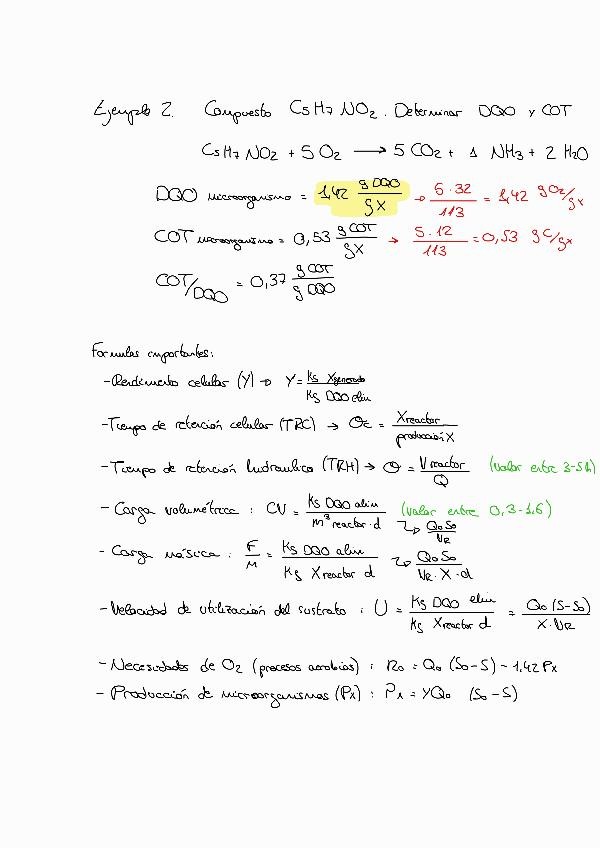 Ejemplo 2. Compuesto C5H7NO2. Determinar DQO y COT
C5H7NO2 + 5O2 → 5CO2 + 1 NH3 + 2 H2O
DQO microorganismo = 1,42 g DQO/gX → 5·32/113 = 1,42 gO2/gx
COT microorganismo = 0,53 g COT/gX → 5·12/113 = 0,53 gC/gx
COT/DQO = 0,37 g COT/g DQO
Formulas importantes:
- Rendimiento celular (Y) → Y = Kg Xgenerado/Kg DQO elim
- Tiempo de retención celular (TRC) → Θc = Xreactor/producciónX
- Tiempo de retención hidraulico (TRH) → Θ = Vreactor/Q (valor entre 3-5h)
- Carga volumétrica : CV = Kg DQO alim/m³ reactor·d (valor entre 0,3-1,6)
↳ Q0S0/VR
- Carga másica : F/M = Kg DQO alim/Kg Xreactor d ↳ Q0S0/VR·X·d
- Velocidad de utilización del sustrato : U = Kg DQO elim/Kg Xreactor d = Q0(S-S0)/X·VR
- Necesidades de O2 (procesos aerobios) : R0 = Q0 (S0-S) - 1,42 Px
- Producción de microorganismos (Px) : Px = YQ0 (S0-S)